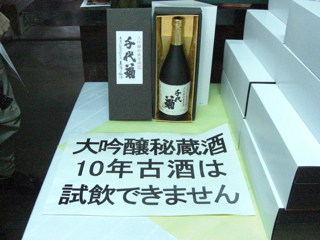 千代菊
千代菊
大吟醸秘蔵酒
10年古酒は
試飲できません